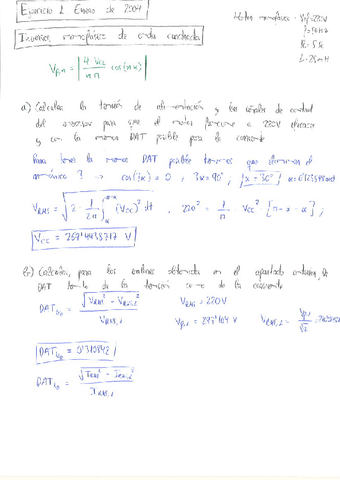 Ejercicio 1 Enero de 2004
Motor monofásico: Vef=220V
f=50Hz
R=5Ω
L=25mH
Inversor monofásico de onda cuadrada
Vp,n = | 4 Vcc / nπ cos(nα) |
a) Calcular la tensión de alimentación y las señales de control
del inversor para que el motor funcione a 220V eficaces
y con la menor DAT posible para la corriente
Para tener la menor DAT posible tenemos que eliminar el
armónico 3 → cos(3α) = 0, 3α=90°; α=30°
VRMS = √(2 · 1/2π ∫ (Vcc)² dt, 220² = 1/π Vcc² [π-α-α];
Vcc = 269'4438717 V
b) Calcular, para los valores obtenidos en el apartado anterior, la
DAT tanto de la tensión como de la corriente
DATv = √(VRMS² - VRMS,1²) / VRMS,1
VRMS = 220V
Vp,1 = 297'104 V
VRMS,1 = Vp,1/√2
DATv = 0'310842
DATi = √(IRMS² - IRMS,1²) / IRMS,1